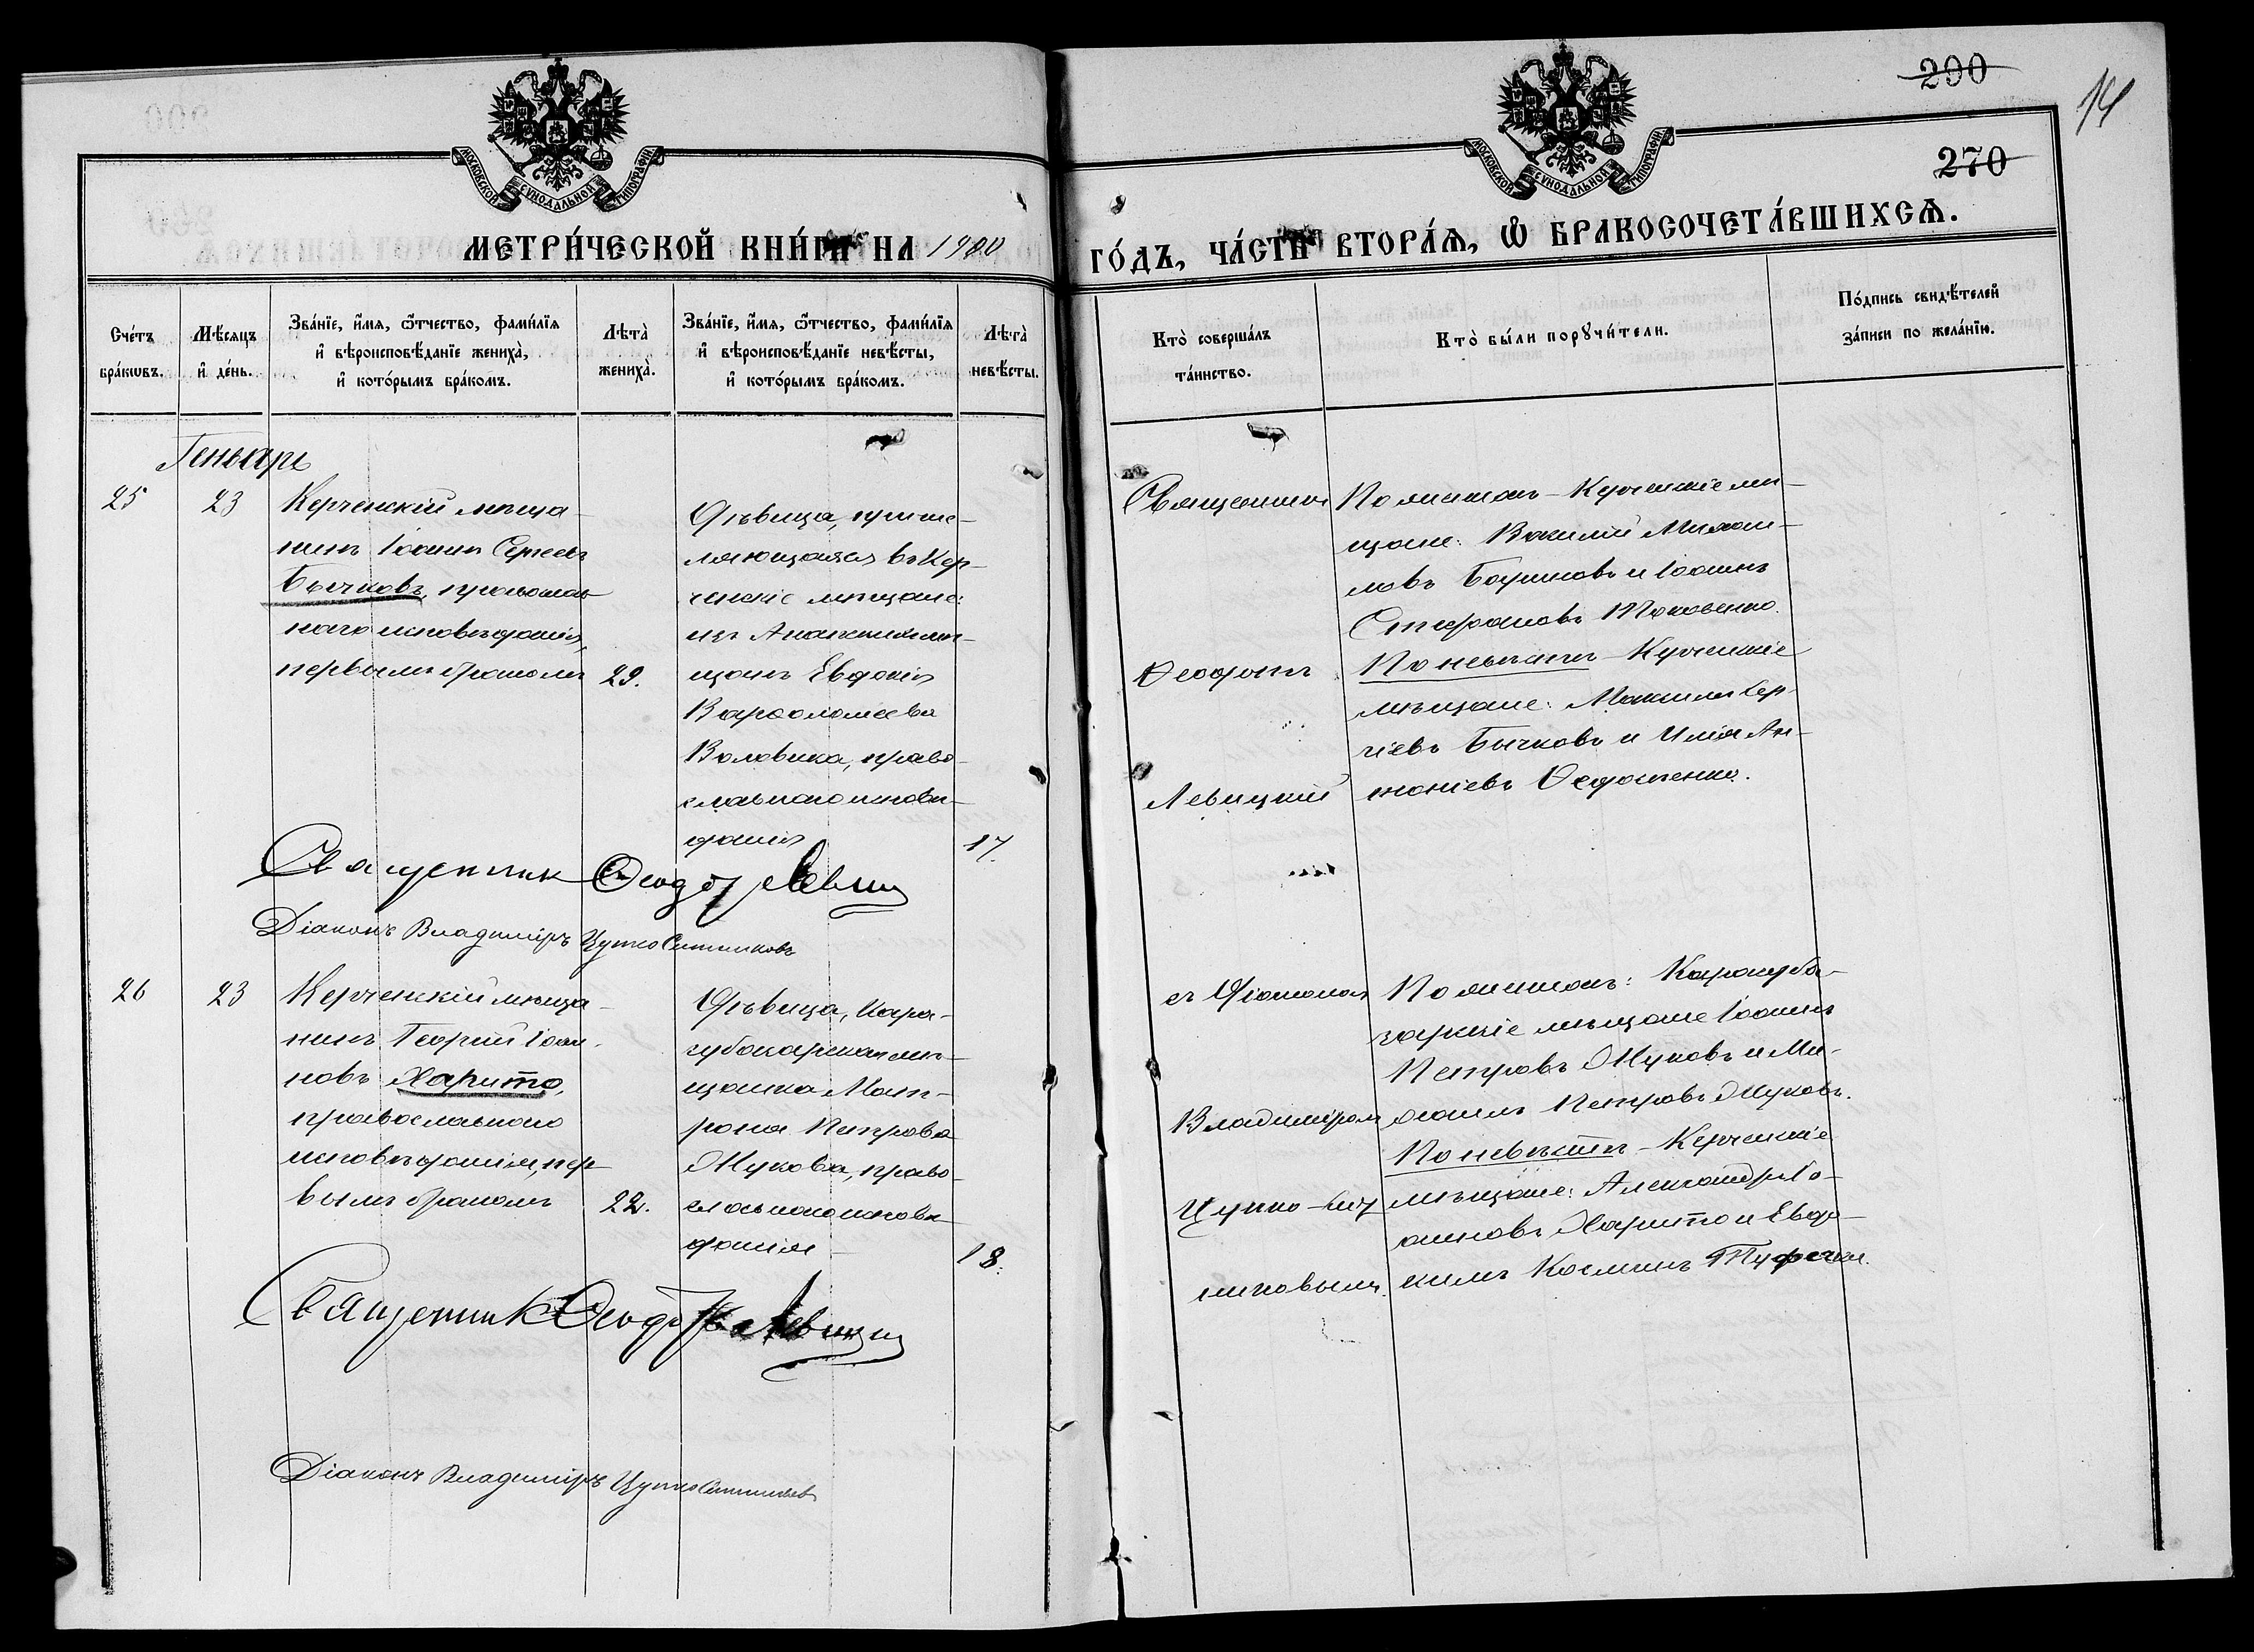 290
14
270
МОСКОВСКОЙ СѴНОДАЛЬНОЙ ТИПОГРАФІИ.
МОСКОВСКОЙ СѴНОДАЛЬНОЙ ТИПОГРАФІИ.
МЕТРИ́ЧЕСКОЙ КНИ́ГИ НА 1900
ГО́ДЪ, ЧА́СТЬ ВТОРА́Ѧ, Ѿ БРАКОСОЧЕТА́ВШИХСѦ.
Сче́тъ
бра́кѡвъ.
Мѣ́сяцъ
и҆ де́нь.
Зва́нїе, и҆́мя, ѻ҆́тчество, фами́лїя
и҆ вѣроисповѣ́данїе жениха̀,
и҆ кото́рымъ бра́комъ.
Лѣта̀
жениха̀.
Зва́нїе, и҆́мя, ѻ҆́тчество, фами́лїя
и҆ вѣроисповѣ́данїе невѣ́сты,
и҆ кото́рымъ бра́комъ.
Лѣта̀
невѣ́сты.
Кто̀ соверша́лъ
та́инство.
Кто̀ бы́ли порꙋчи́тели.
По́дпись свидѣ́телей
за́писи по жела́нїю.
Геньварь
25
23
Керченскій мѣща-
нинъ Іоаннъ Сергеевъ
Бычковъ, православ-
наго исповѣданія,
первымъ бракомъ
29.
Дѣвица, причис-
ляющаяся въ Кер-
ченскіе мѣщане:
изъ Анапскихъ мѣ-
щанъ Евдокія
Варѳоломеева
Воловика, право-
славнаго исповѣ-
данія
17.
Священникъ
Ѳеодоръ
Левицкій
По женихѣ - Керченскіе мѣ-
щане: Василій Михаи-
ловъ Баушковъ и Іоаннъ
Стефановъ Маковенко.
По невѣстѣ - Керченскіе
мѣщане: Максимъ Сер-
гіевъ Бычковъ и Илія Ан-
тоніевъ Ѳедотенко.
Священник Ѳеодор Левиц
Діаконъ Владиміръ Цупко Ситниковъ
26
23
Керченскій мѣща-
нинъ Георгій Іоан-
новъ Харито,
православнаго
исповѣданія, пер-
вымъ бракомъ
22.
Дѣвица, Кара-
субазарская мѣ-
щанка Мат-
рона Петрова
Жукова, право-
славнаго исповѣ-
данія
18.
съ Діакономъ
Владиміромъ
Цупко-Сит
никовымъ.
По женихѣ: Карасуба-
зарскіе мѣщане Іоаннъ
Петровъ Жуковъ и Ми-
хаилъ Петровъ Жуковъ.
По невѣстѣ - Керченскіе
мѣщане: Александръ Іо-
анновъ Харито и Евдо-
кимъ Косминъ
Священник Ѳеодоръ Левицкій
Діаконъ Владиміръ Цупко Ситниковъ